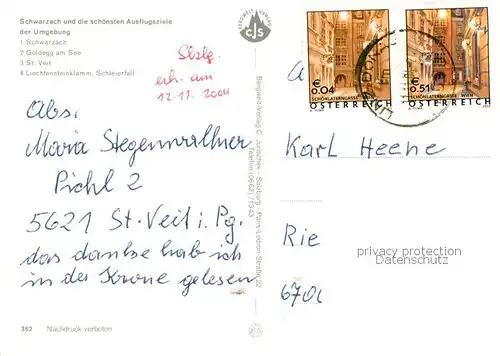 Schwarzach und die schönsten Ausflugsziele
der Umgebung
1 Schwarzach
2 Goldegg am See
3 St. Veit
4 Liechtensteinklamm, Schleierfall
erh. am
12.11.2004
Abs.
Maria Stegenwallner
Pichl 2
5621 St. Veit i. Pg.
das dantse hab ich
in der Krone gelesen
382 Nachdruck verboten
BERGWELT VERLAG
CJS
Bergwelt-Verlag C. Jurischek - Salzburg - Paris-Lodron-Straße 22
Telefon (0662) 71343
€ 0.04
SCHÖNLATERNGASSE WIEN
ÖSTERREICH
€ 0.51
SCHÖNLATERNGASSE WIEN
ÖSTERREICH
Karl Heene
Rie
670
privacy protection
Datenschutz